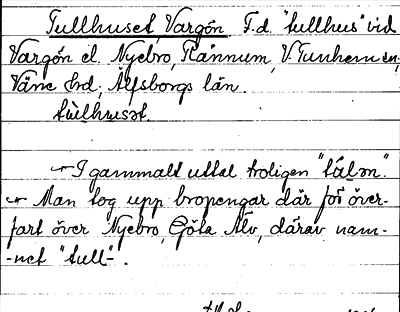 Tullhuset, Vargön F.d. "tullhus" vid
Vargön el. Nyebro, Rånnum, V. Tunhem sn,
Väne hd, Älfsborgs län.
tùlhusət.
I gammalt uttal troligen "túlən".
Man tog upp bropengar där för över-
fart över Nyebro, Göta Älv, därav nam-
-net "tull-".